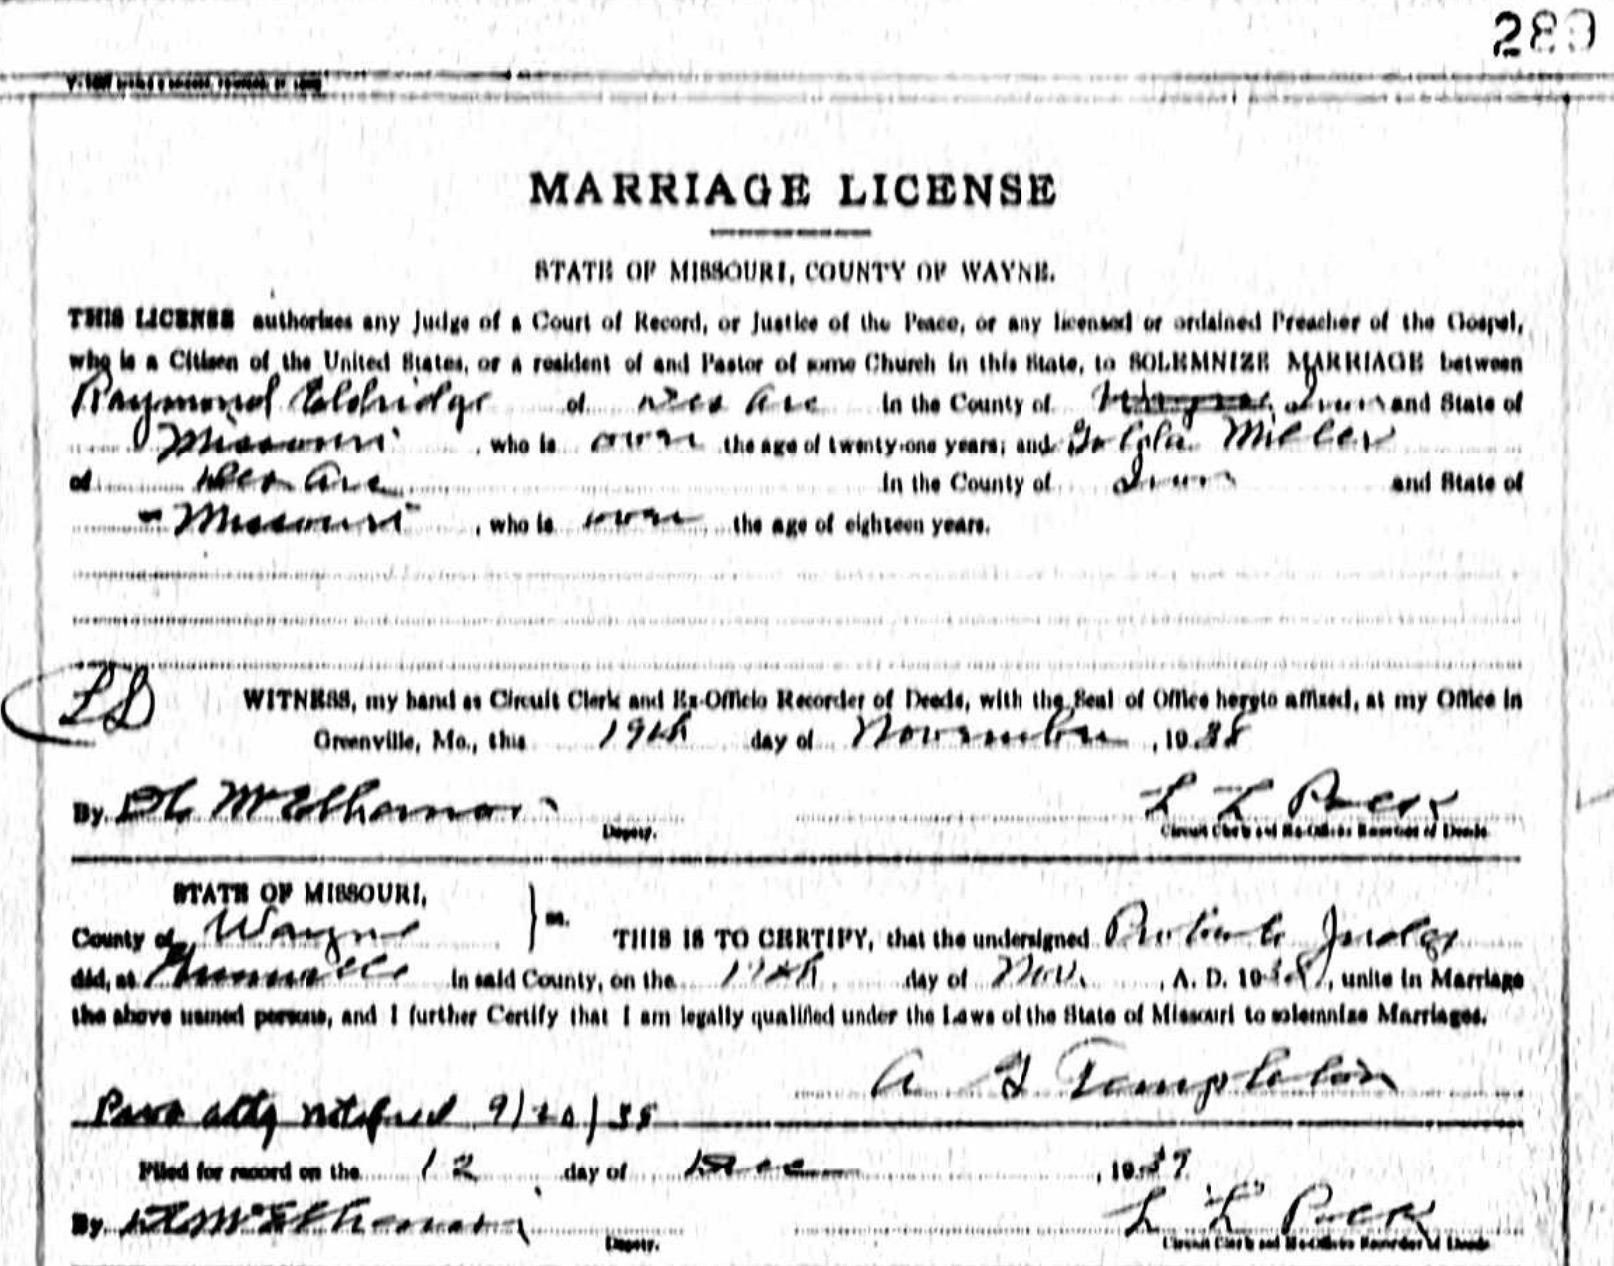 289
MARRIAGE LICENSE
STATE OF MISSOURI, COUNTY OF WAYNE.
THIS LICENSE authorizes any Judge of a Court of Record, or Justice of the Peace, or any licensed or ordained Preacher of the Gospel,
who is a Citizen of the United States, or a resident of and Pastor of some Church in this State, to SOLEMNIZE MARRIAGE between
Raymond Eldridge of Des Arc in the County of Wayne Iron and State of
Missouri, who is over the age of twenty-one years; and Miller
of Des Arc in the County of Iron and State of
Missouri, who is over the age of eighteen years.
LS WITNESS, my hand as Circuit Clerk and Ex-Officio Recorder of Deeds, with the Seal of Office hereto affixed, at my Office in
Greenville, Mo., this 19th day of November, 1938
By McElhanon Deputy. L L Peck
Circuit Clerk and Ex-Officio Recorder of Deeds
STATE OF MISSOURI,
County of Wayne } ss. THIS IS TO CERTIFY, that the undersigned Probate Judge
did, at Greenville in said County, on the 19th day of Nov., A. D. 1938, unite in Marriage
the above named persons, and I further Certify that I am legally qualified under the Laws of the State of Missouri to solemnize Marriages.
A Templeton
atty notified 9/20/38
Filed for record on the 12 day of Dec, 1939
By McElhanon Deputy. L L Peck
Circuit Clerk and Ex-Officio Recorder of Deeds